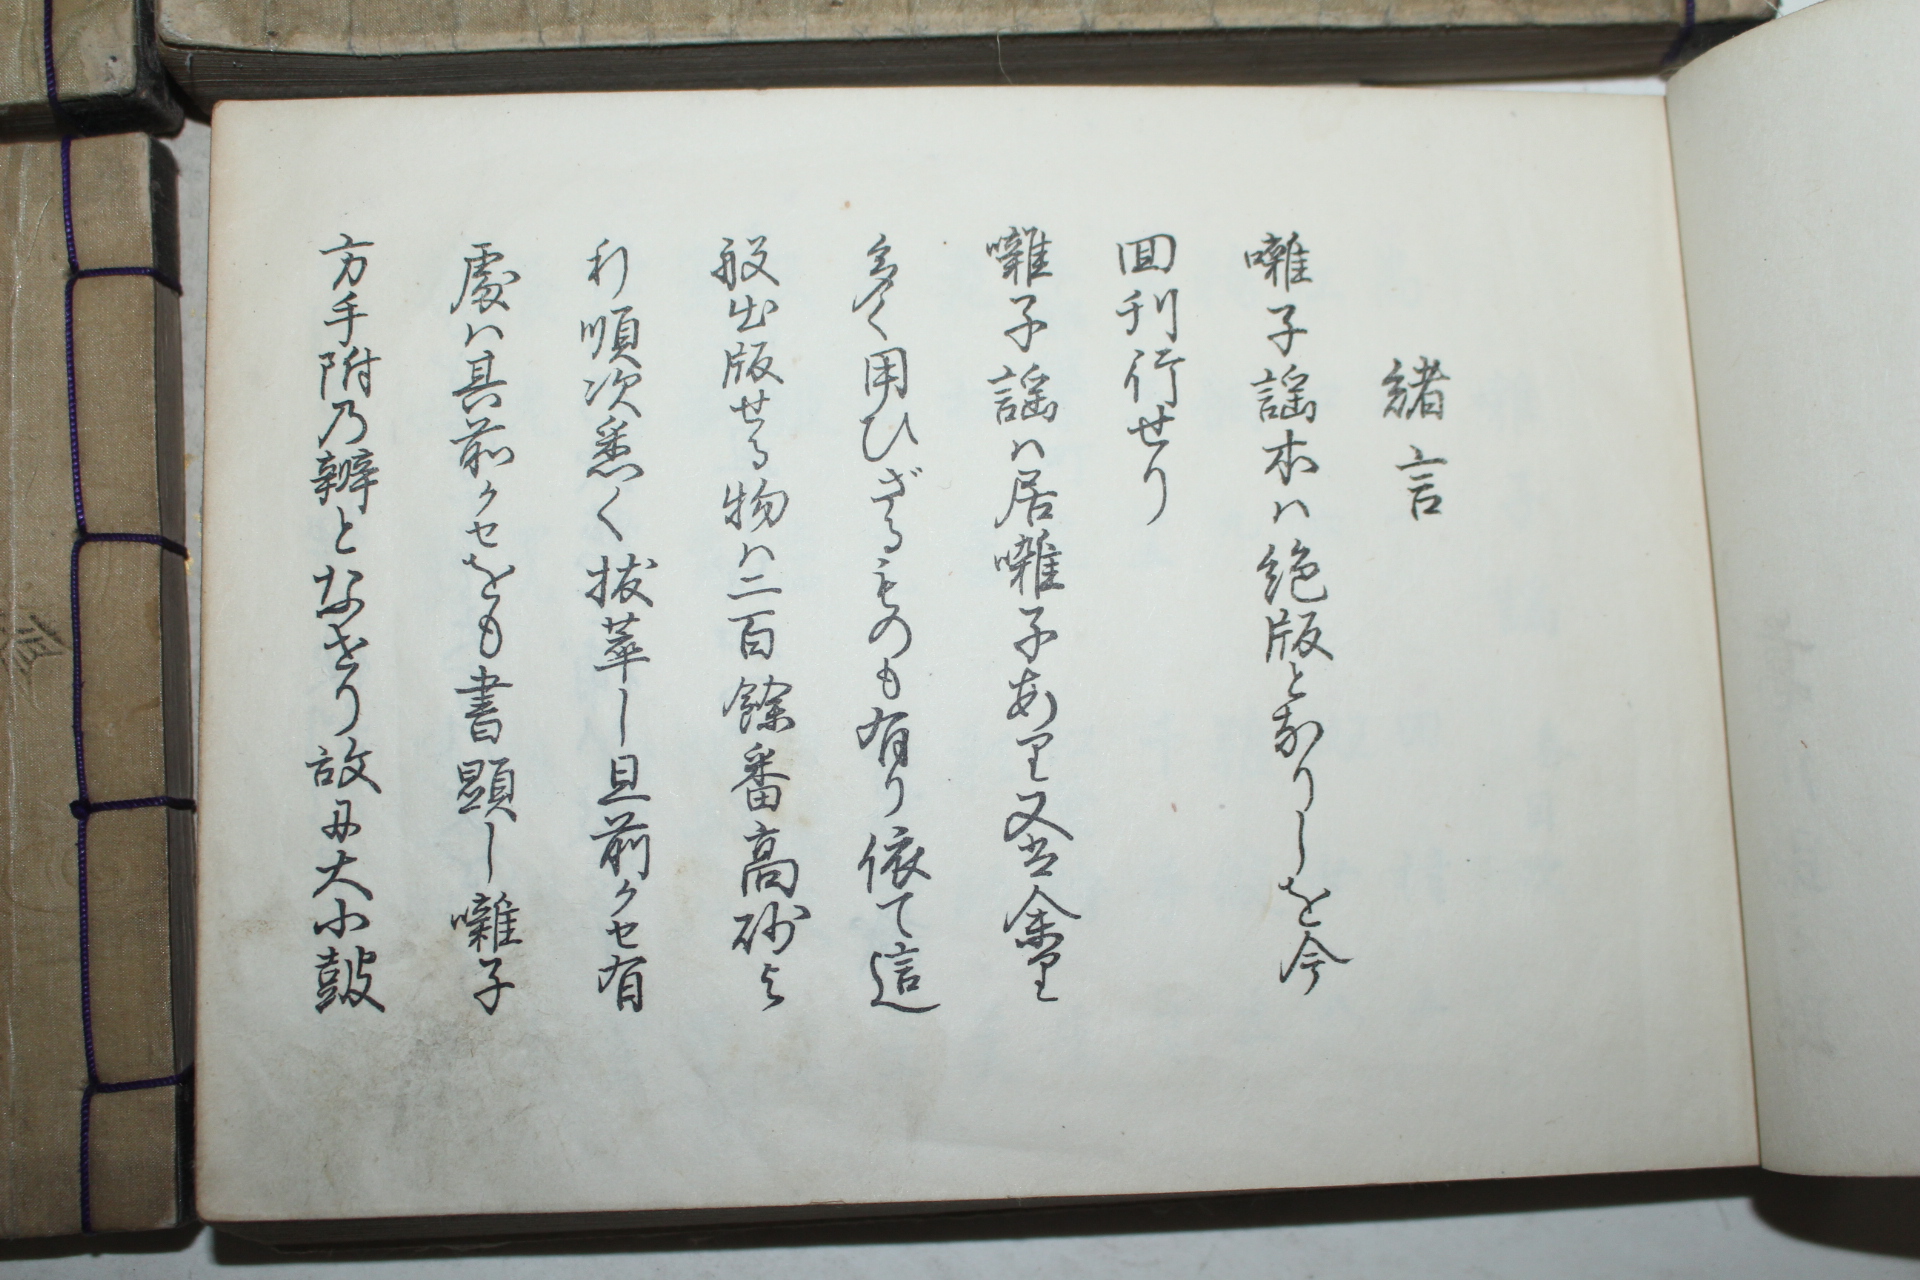 緒言
囃子謡本ハ絶版となりしを今
回刊行せり
囃子謡ハ居囃子あり又舎里
多く用ひざるものも有り依て這
般出版せる物ハ二百餘番高砂よ
り順次悉く抜萃し且前クセ有
處ハ其前クセをも書顕し囃子
方手附乃辨となせり故に大小鼓